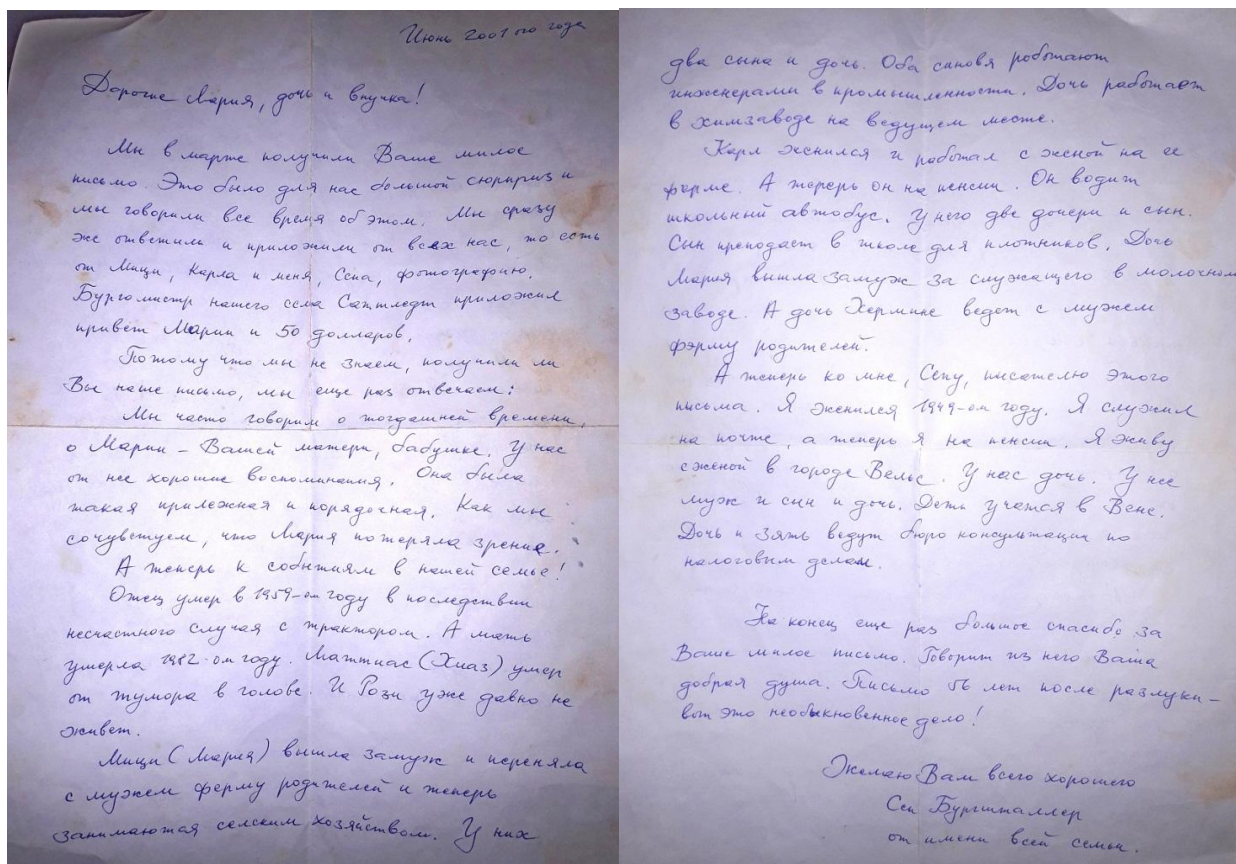 Июнь 2001 ого года
Дорогие Мария, дочь и внучка!
Мы в марте получили Ваше милое
письмо. Это было для нас большой сюрприз и
мы говорили все время об этом. Мы сразу
же ответили и приложили от всех нас, то есть
от Мици, Карла и меня, Сепа, фотографию.
Бургомистр нашего села Саттледт приложил
привет Марии и 50 долларов.
Потому что мы не знаем, получили ли
Вы наше письмо, мы еще раз отвечаем:
Мы часто говорим о тогдашней времени,
о Марии – Вашей матери, бабушке. У нас
от нее хорошие воспоминания. Она была
такая прилежная и порядочная. Как мы
сочувствуем, что Мария потеряла зрение.
А теперь к событиям в нашей семье!
Отец умер в 1959-ом году в последствии
несчастного случая с трактором. А мать
умерла 1982-ом году. Маттиас (Хиаз) умер
от тумора в голове. И Рози уже давно не
живет.
Мици (Мария) вышла замуж и переняла
с мужем ферму родителей и теперь
занимаются селским хозяйством. У них
два сына и дочь. Оба сыновя работают
инженерами в промышленности. Дочь работает
в химзаводе на ведущем месте.
Карл женился и работал с женой на ее
ферме. А теперь он на пенсии. Он водит
школьный автобус. У него две дочери и сын.
Сын преподает в школе для плотников. Дочь
Мария вышла замуж за служащего в молочном
заводе. А дочь Хермине ведет с мужем
ферму родителей.
А теперь ко мне, Сепу, писателю этого
письма. Я женился 1949-ом году. Я служил
на почте, а теперь я на пенсии. Я живу
с женой в городе Вельс. У нас дочь. У нее
муж и сын и дочь. Дети учатся в Вене.
Дочь и зять ведут бюро консультации по
налоговым делам.
На конец еще раз большое спасибо за
Ваше милое письмо. Говорит из него Ваша
добрая душа. Письмо 56 лет после разлуки –
вот это необыкновенное дело!
Желаю Вам всего хорошего
Сеп Бургшталлер
от имени всей семьи.